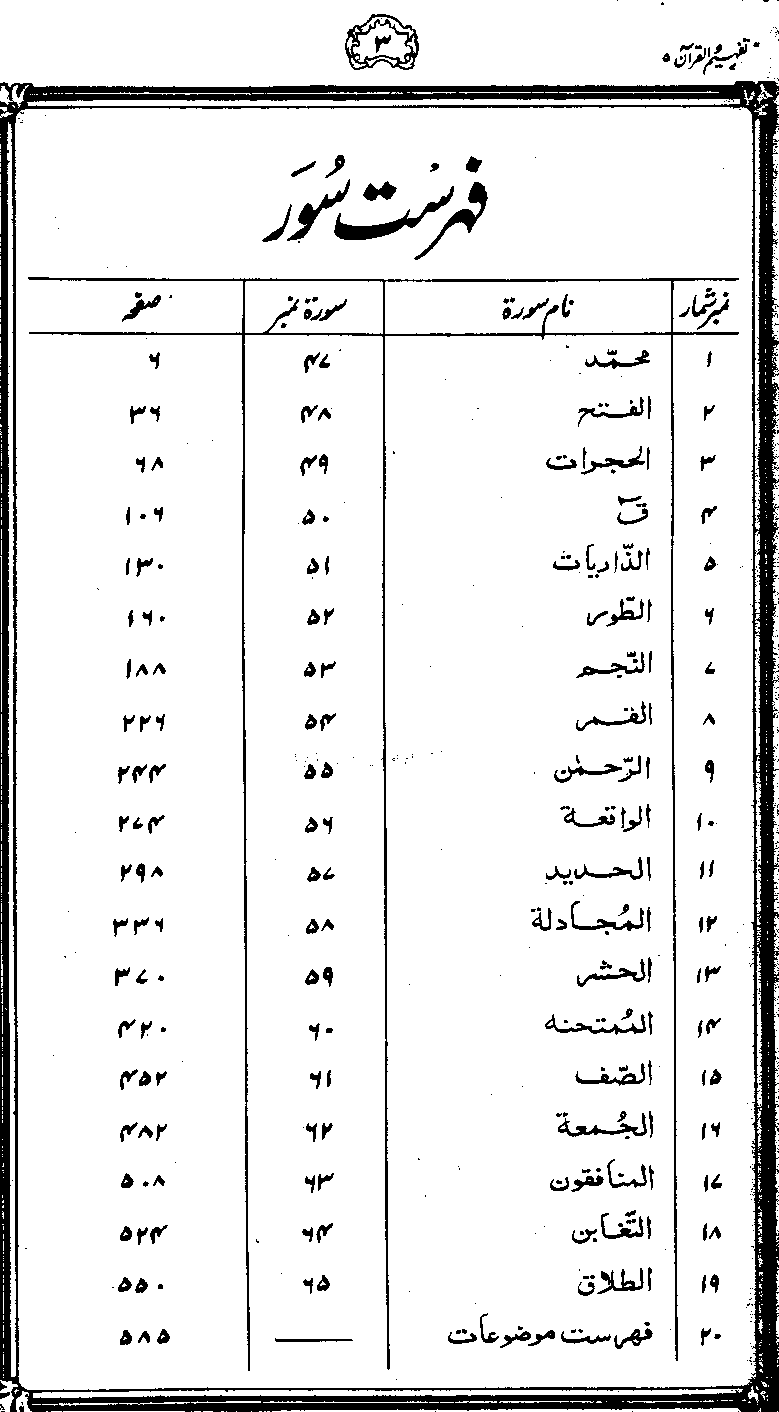 تفہیم القرآن ۵
۳
فہرست سُوَر
نمبر شمار نام سورۃ سورۃ نمبر صفحہ
۱ محمّد ۴۷ ۶
۲ الفتح ۴۸ ۳۶
۳ الحجرات ۴۹ ۶۸
۴ قٓ ۵۰ ۱۰۶
۵ الذّاریات ۵۱ ۱۳۰
۶ الطّور ۵۲ ۱۶۰
۷ النّجم ۵۳ ۱۸۸
۸ القمر ۵۴ ۲۲۶
۹ الرّحمٰن ۵۵ ۲۴۴
۱۰ الواقعۃ ۵۶ ۲۷۴
۱۱ الحدید ۵۷ ۲۹۸
۱۲ المُجادلۃ ۵۸ ۳۳۶
۱۳ الحشر ۵۹ ۳۷۰
۱۴ المُمتحنہ ۶۰ ۴۲۰
۱۵ الصّف ۶۱ ۴۵۲
۱۶ الجُمعۃ ۶۲ ۴۸۲
۱۷ المنافقون ۶۳ ۵۰۸
۱۸ التّغابن ۶۴ ۵۲۴
۱۹ الطلاق ۶۵ ۵۵۰
۲۰ فہرست موضوعات —— ۵۸۵